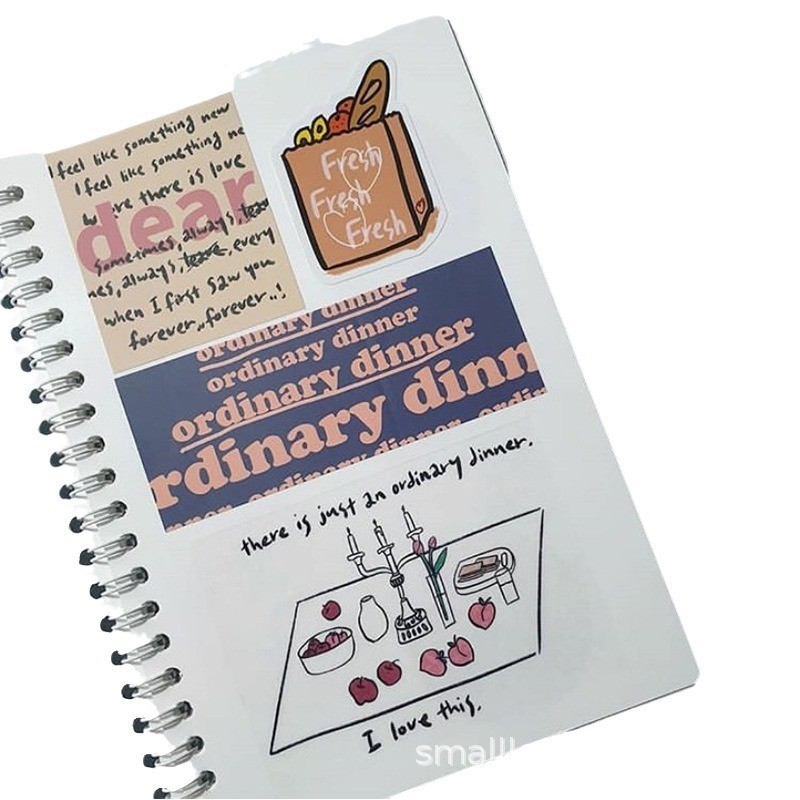 I feel like something new
I feel like something ne
where there is love
dear
sometimes, always,
mes, always, leave, every
when I first saw you
forever,, forever..!
Fresh
Fresh
Fresh
ordinary dinner
ordinary dinner
ordinary dinner
rdinary dinn
nner, ordinary dinner, ordin
there is just an ordinary dinner.
I love this.
smalll